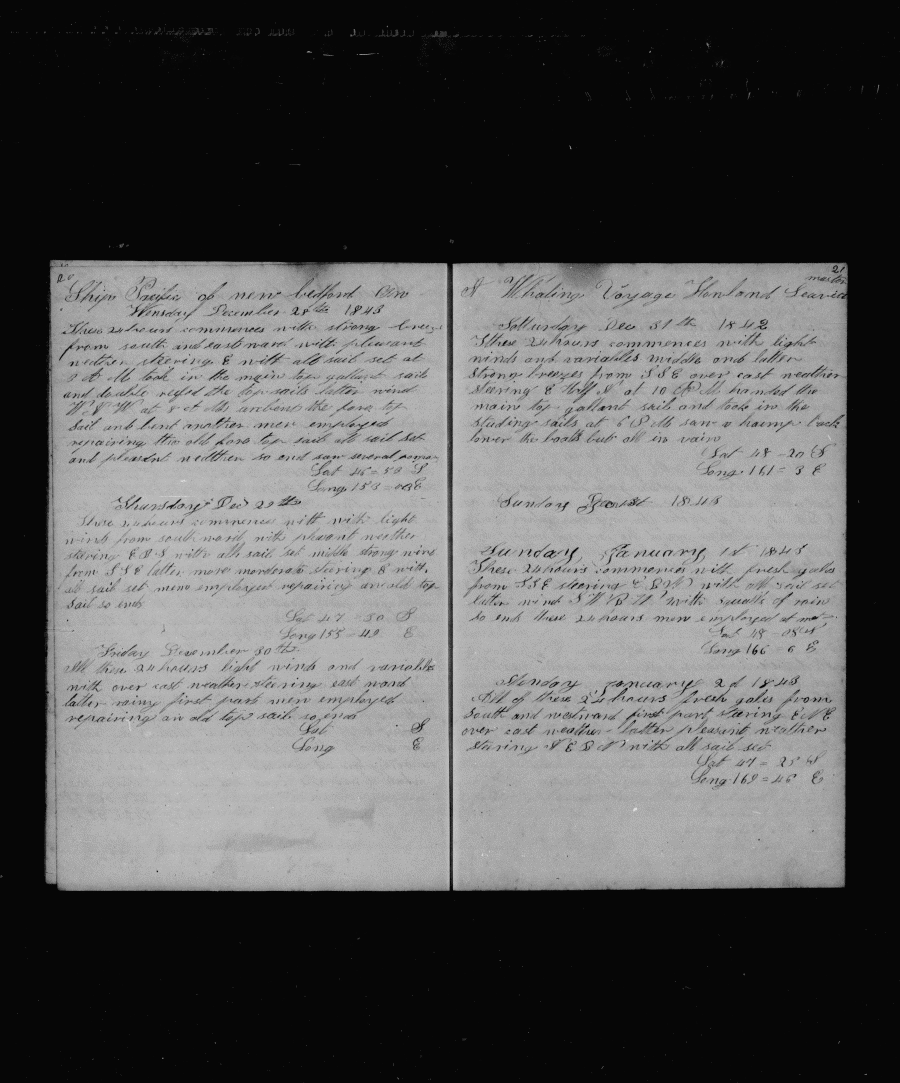 20
Ship Pacific of new bedford On
Wensday December 28th 1843
These 24 hours commences with strong breeze
from south and eastward with pleasant
weather steering E with all sail set at
A M took in the main top gallant sails
and double reefd the top sails latter wind
W S W at 8 A M unbent the fore top
sail and bent another men employed
repairing the old fore top sail all sail set
and pleasant weather so end saw several
Lat 46 = 50 S
Long 153 = E
Thursday Dec 29th
These 24 hours commence with with light
winds from south ward with plesant weather
steering E B S with all sail set middle strong wind
from S S E latter more morderate steering E with
all sail set men employed repairing an old top
sail so ends
Lat 47 = 50 S
Long 155 = 40 E
Friday December 30th
All these 24 hours light winds and variables
with over cast weather steering east ward
latter rainy first part men employed
repairing an old top sail so ends
Lat S
Long E
21
A Whaling Voyage Howland Leavie master
Satturday Dec 31th 1842
These 24 hours commences with light
winds and variables middle and latter
strong breezes from S S E over cast weather
steering E half N at 10 P M handed the
main top gallant sail and took in the
studing sails at 6 P M saw a hump back
lower the boats but all in vain
Lat 48 = 20 S
Long 161 = 3 E
Sunday 1st 1843
Sunday January 1st 1843
These 24 hours commences with fresh gales
from S S E steering E B N with all sail set
latter wind S W B W with squalls of rain
so ends these 24 hours men employed at
Lat 48 = 08 S
Long 166 = 6 E
Monday January 2d 1843
All of these 24 hours fresh gales from
South and westward first part steering E N E
over cast weather latter pleasant weather
steering N E B N with all sail set
Lat 47 = 25 S
Long 169 = 46 E